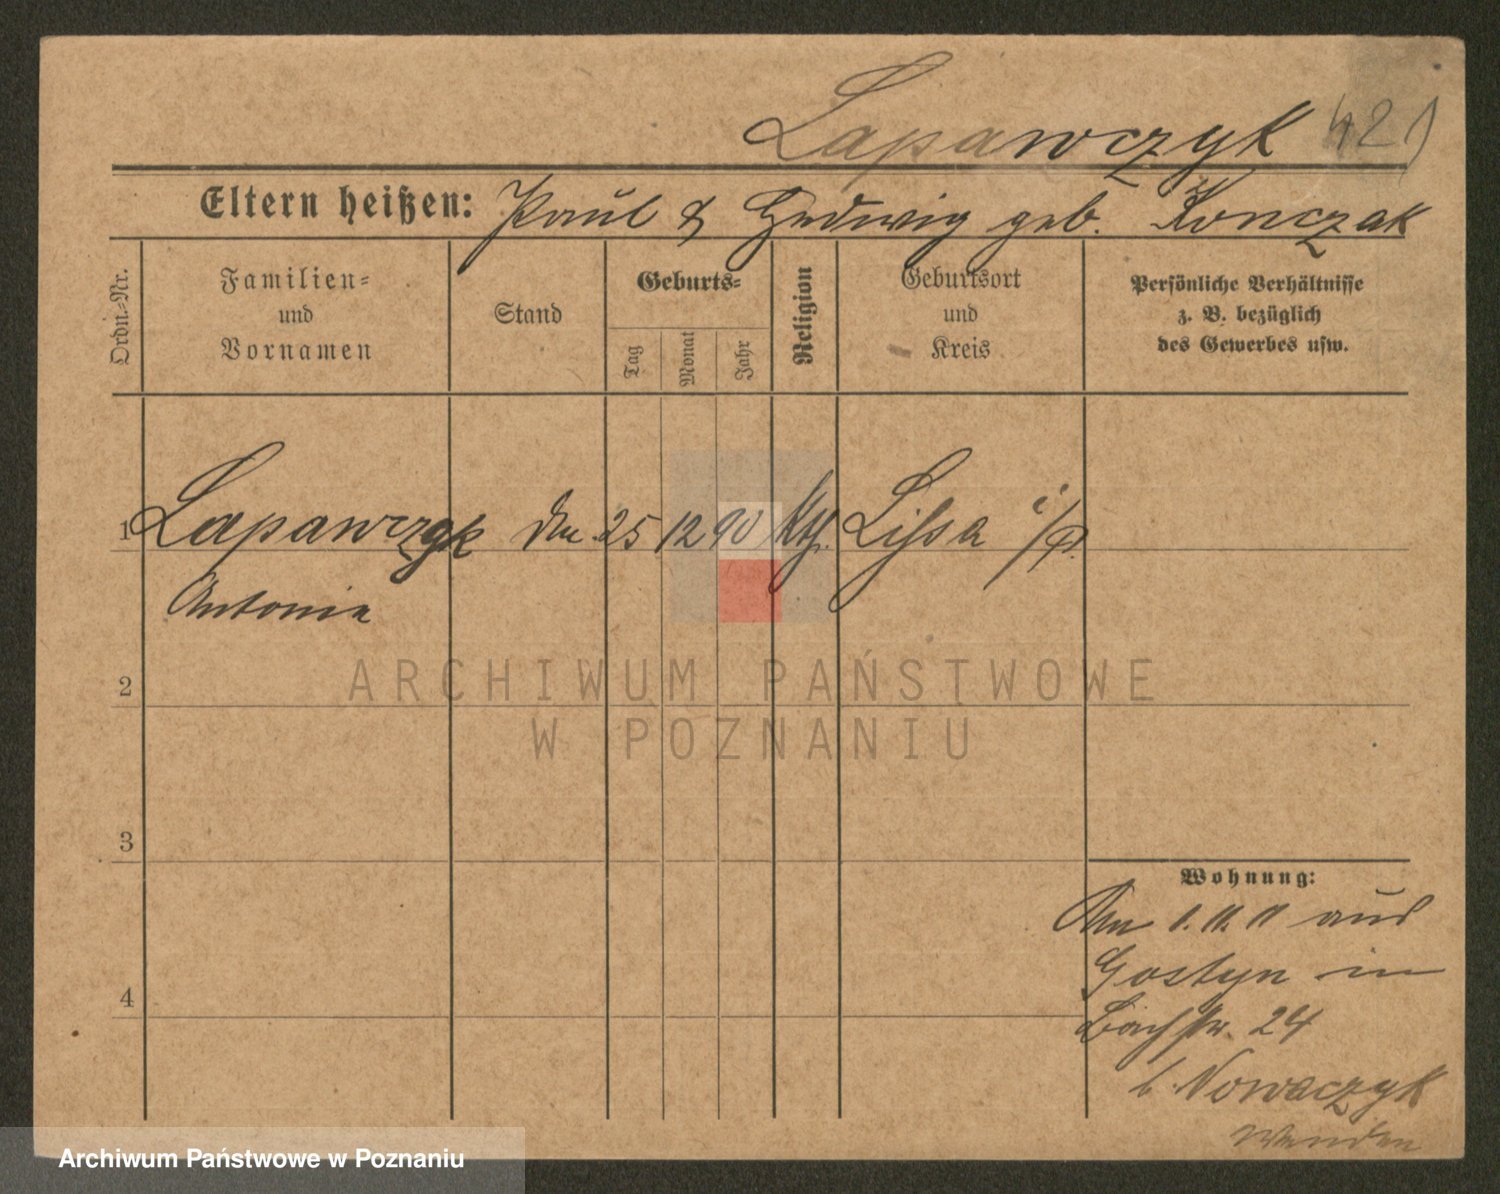 Lapawczyk 421
Eltern heißen: Paul & Hedwig geb. Konczak
Ordn.-Nr.
Familien-
und
Vornamen
Stand
Geburts-
Tag
Monat
Jahr
Religion
Geburtsort
und
Kreis
Persönliche Verhältnisse
z. B. bezüglich
des Gewerbes usw.
1 Lapawczyk 25 12 90 Kth. Lissa i/P.
Antonie
2
ARCHIWUM PAŃSTWOWE
W POZNANIU
3
Wohnung:
Am 1.11.11 aus
Gostyn in
4
Bachstr. 24
b. Nowaczyk
Wenden
Archiwum Państwowe w Poznaniu